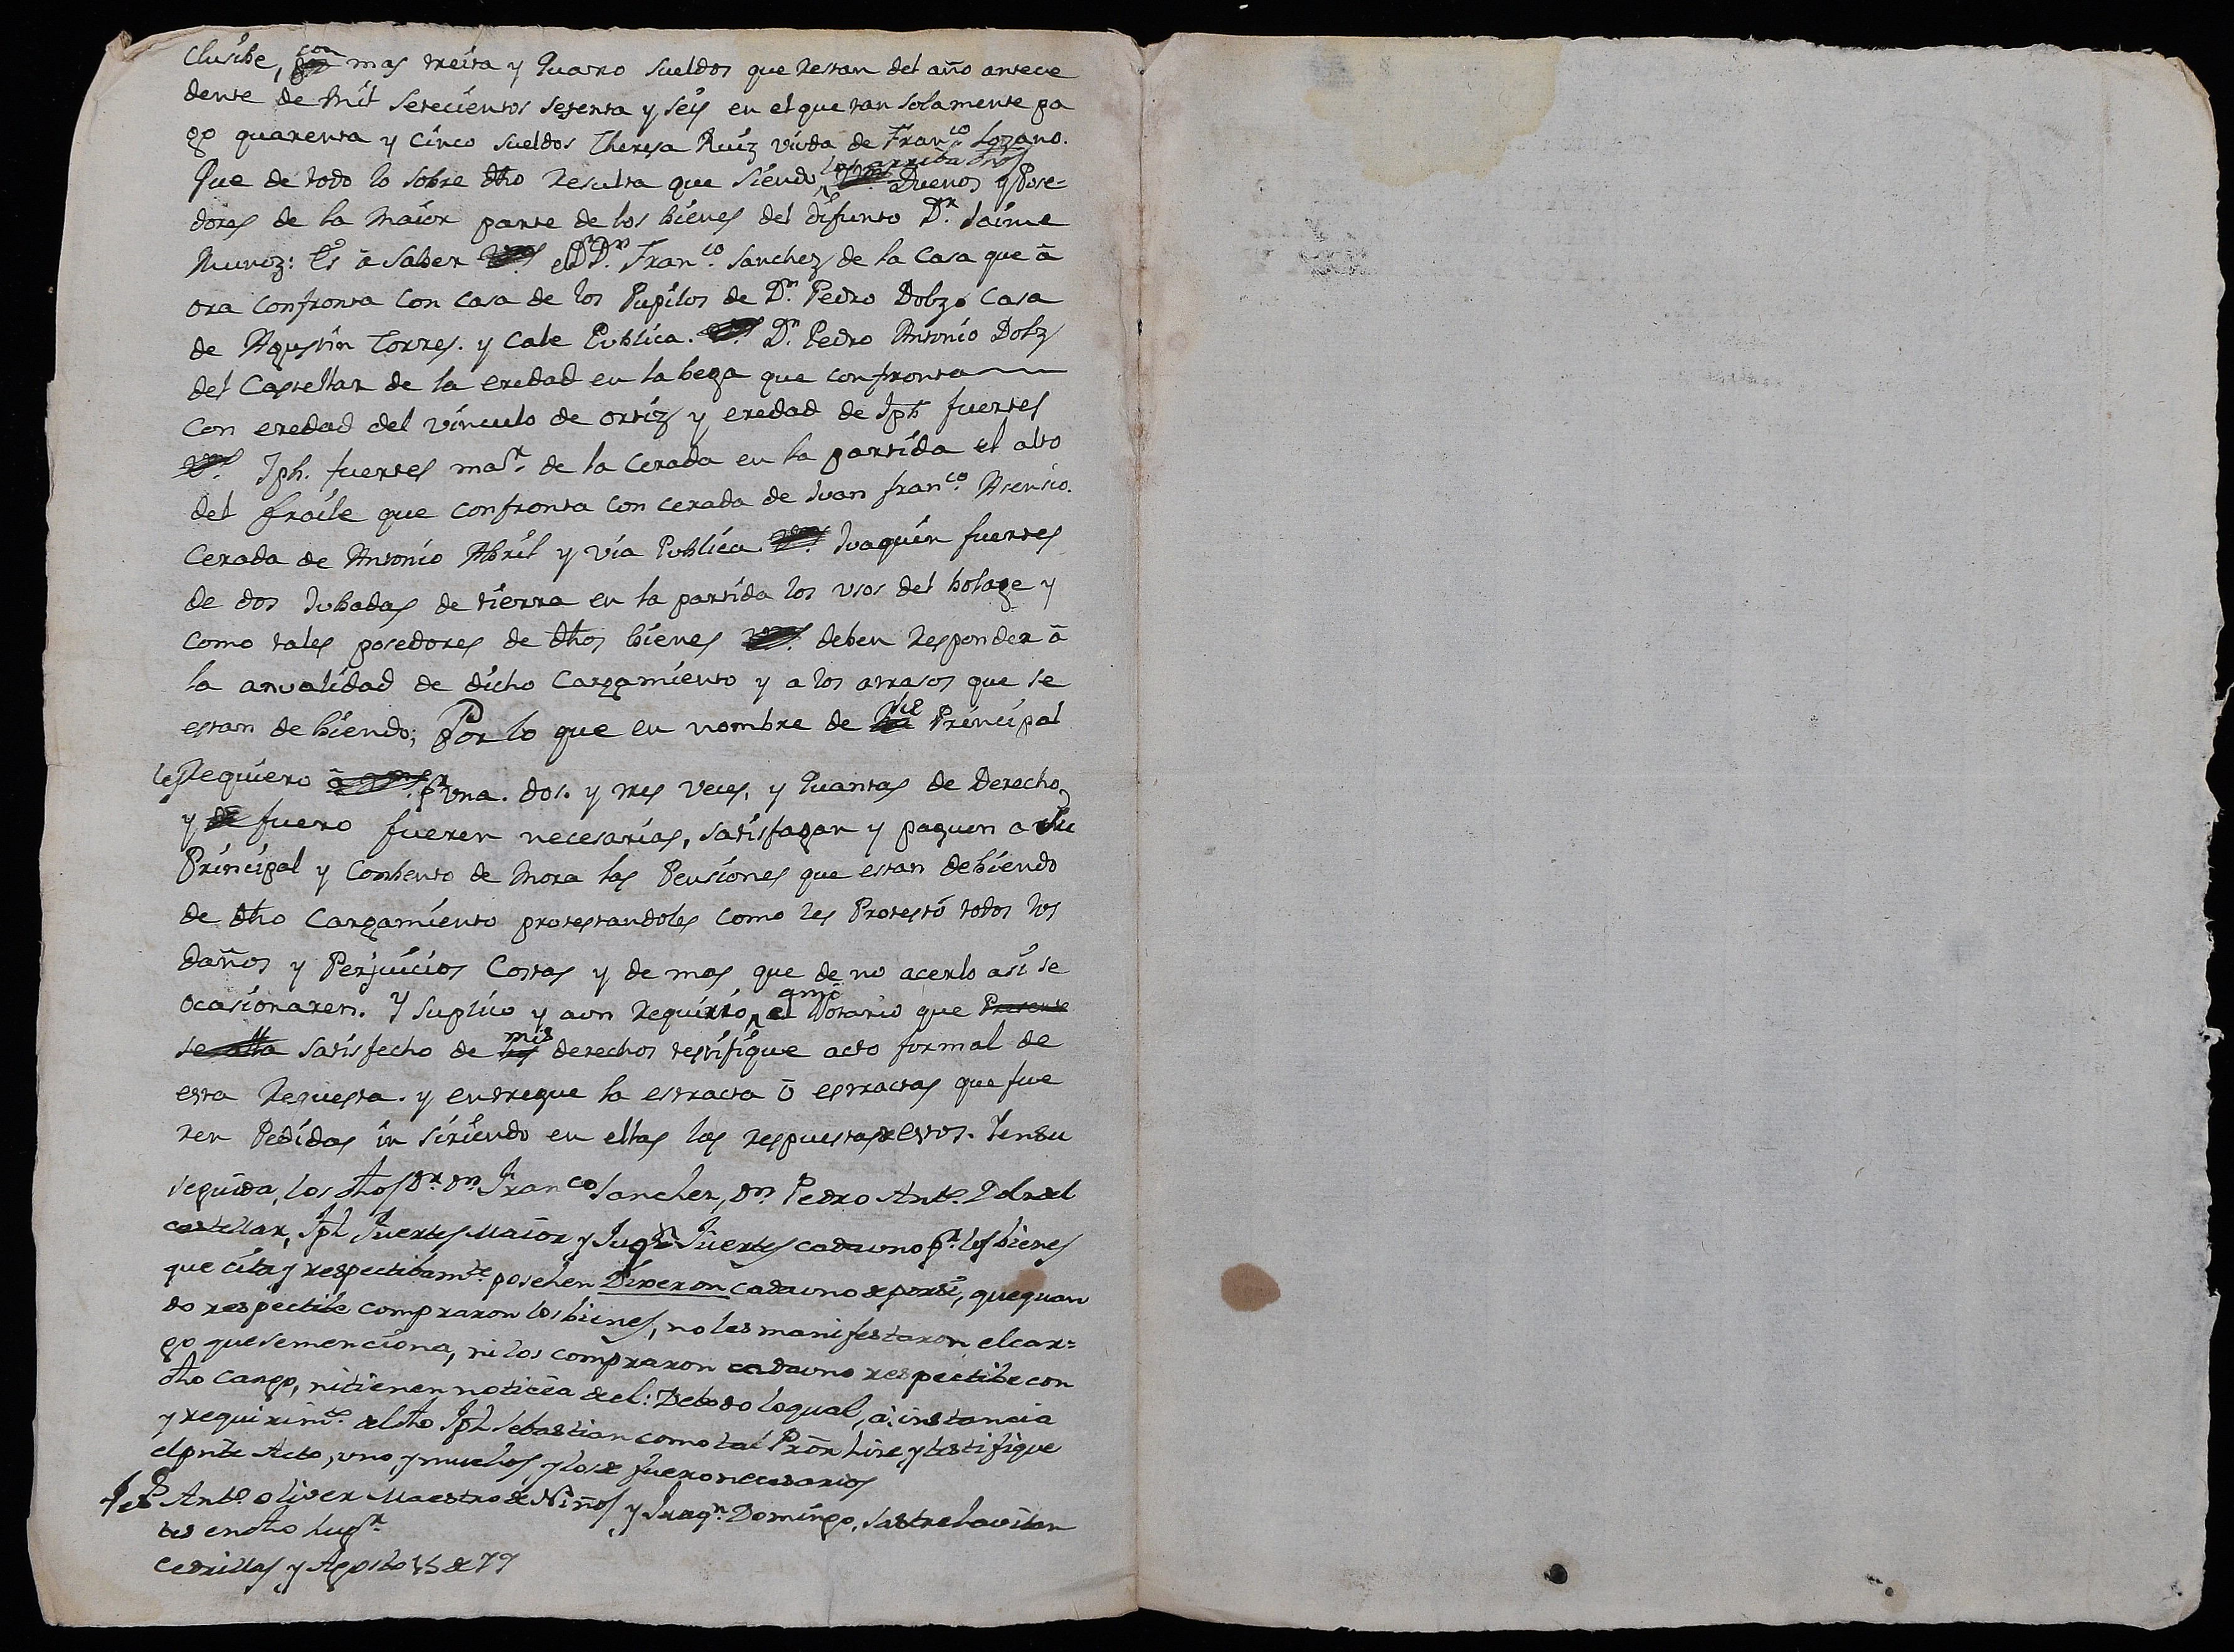 clusibe, con mas treita y Quatro sueldos que Restan del año antece
dente de Mil Setecientos Setenta y Seis en el que tan solamente pa
go quarenta y cinco sueldos Theresa Ruiz viuda de Fran.co Lozano.
Que de todo lo sobre dho Resulta que siendo los arriba dhos Duenos y Pose=
dores de la Maior parte de los bienes del difunto D.r Jaime
Munoz: Es â saber el D.r D.n Fran.co Sanchez de la Casa que â
ora confronta Con casa de los Pupilos de D.n Pedro Dolz, Casa
de Agustin Torres. y Cale Publica. D.n Pedro Antonio Dolz
del Castellar de la eredad en la bega que confronta
Con eredad del vinculo de ortiz y eredad de Jph fuertes
Jph. fuertes ma.r de la Cerada en la partida el alto
del fraile que confronta con cerada de Juan fran.co Asensio.
Cerada de Antonio Abril y via Publica Juaquin fuertes
de dos Jubadas de tierra en la partida los usos del bolage y
como tales posedores de dhos bienes deben Responder â
la anualidad de dicho Cargamiento y a los atrasos que se
estan de biendo; Por lo que en nombre de Principal
les Requiero p.r una. dos. y tres veces, y Quantas de Derecho,
y fuero fueren necesarias, satisfagan y paguen a su
Principal y Conbento de Mora las Pensiones que estan debiendo
de dho Cargamiento protestandoles como les Protestó todos los
daños y Perjuicios Costas y de mas que de no acerlo asi se
ocasionaren. Y suplico y aun Requirió, el Notario que Presente
se alla satisfecho de mis derechos testifique acto formal de
esta Requesta. y entregue la estracta ô estractas que fue
ren Pedidas in siriendo en ellas las Respuestas de estos. Y en su
seguida, los dhos D.r D.n Fran.co Sanchez, D.n Pedro Ant.o Dolz del
castellar, Jph Fuertes Maior y Juaq.n Fuertes cada uno p.r los bienes
que cita y respectibam.te posehen Dixeron cada uno de por si, que quan
do respectibe compraron los bienes, no les manifestaron el car=
go que se menciona, ni los compraron cada uno respectibe con
dho Cargo, ni tienen noticia de el: De todo lo qual, â instancia
y requirim.to del dho Jph Sebastian como tal Pror hize, y testifique
el pnte Acto, uno, y muchos, y los de fuero necesarios
Tes Ant.o oliver Maestro de Niños y Juaq.n Domingo, sastre havitan
tes en dho lug.r
Cedrillas y Agosto 15 de 79